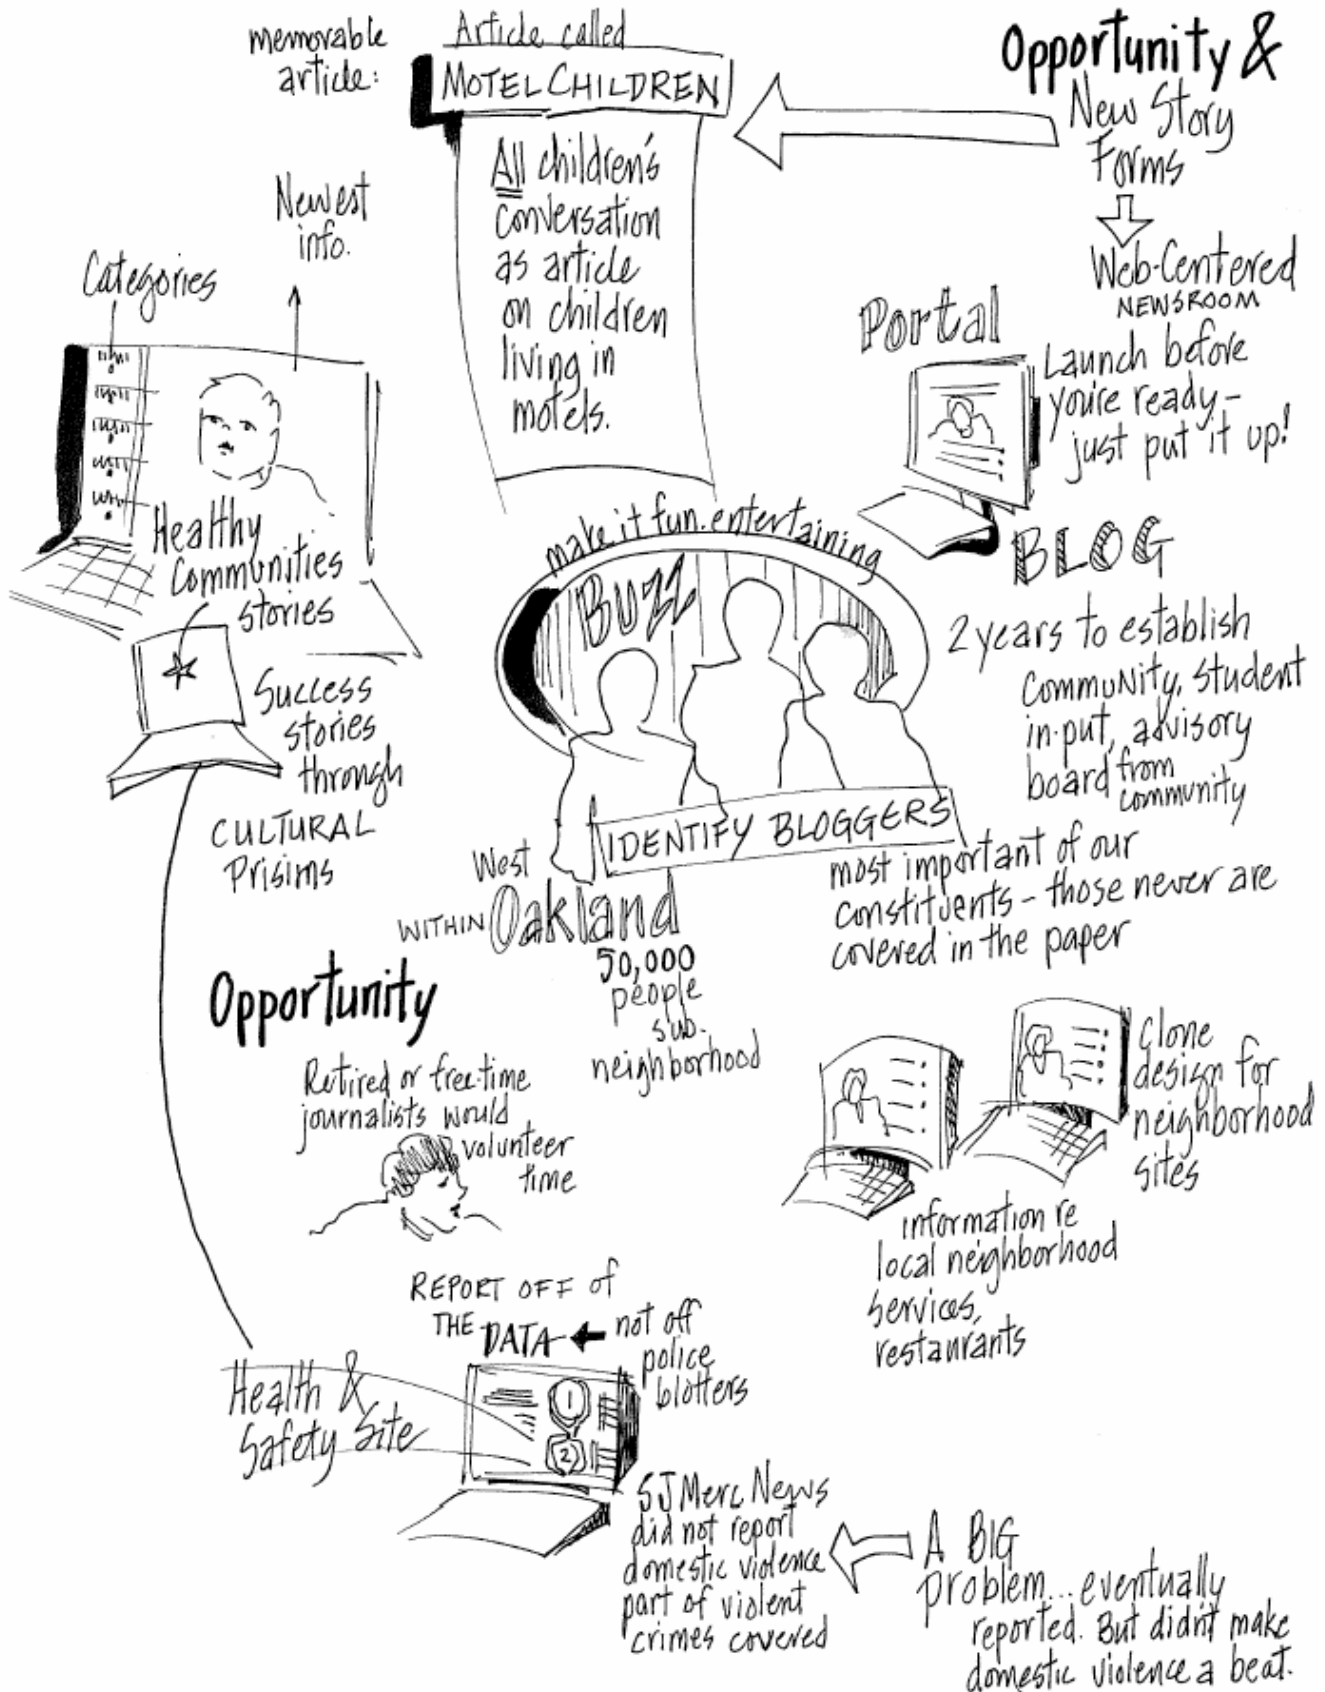 memorable
article:
Article called
MOTEL CHILDREN
All children's
conversation
as article
on children
living in
motels.
Opportunity &
New Story
Forms
Web-Centered
NEWSROOM
Launch before
you're ready-
just put it up!
Portal
Newest
info.
Categories
Healthy
Communities
stories
Success
stories
through
CULTURAL
Prisims
make it fun. entertaining
BUZZ
IDENTIFY BLOGGERS
BLOG
2 years to establish
Community, student
in-put, advisory
board from
community
most important of our
constituents - those never are
covered in the paper
West
WITHIN Oakland
50,000
people
sub-
neighborhood
Opportunity
Retired or free-time
journalists would
volunteer
time
Clone
design for
neighborhood
sites
information re
local neighborhood
services,
restaurants
REPORT OFF of
THE DATA
not off
police
blotters
1
2
Health &
Safety Site
SJ Merc News
did not report
domestic violence
part of violent
crimes covered
A BIG
problem... eventually
reported. But didn't make
domestic violence a beat.